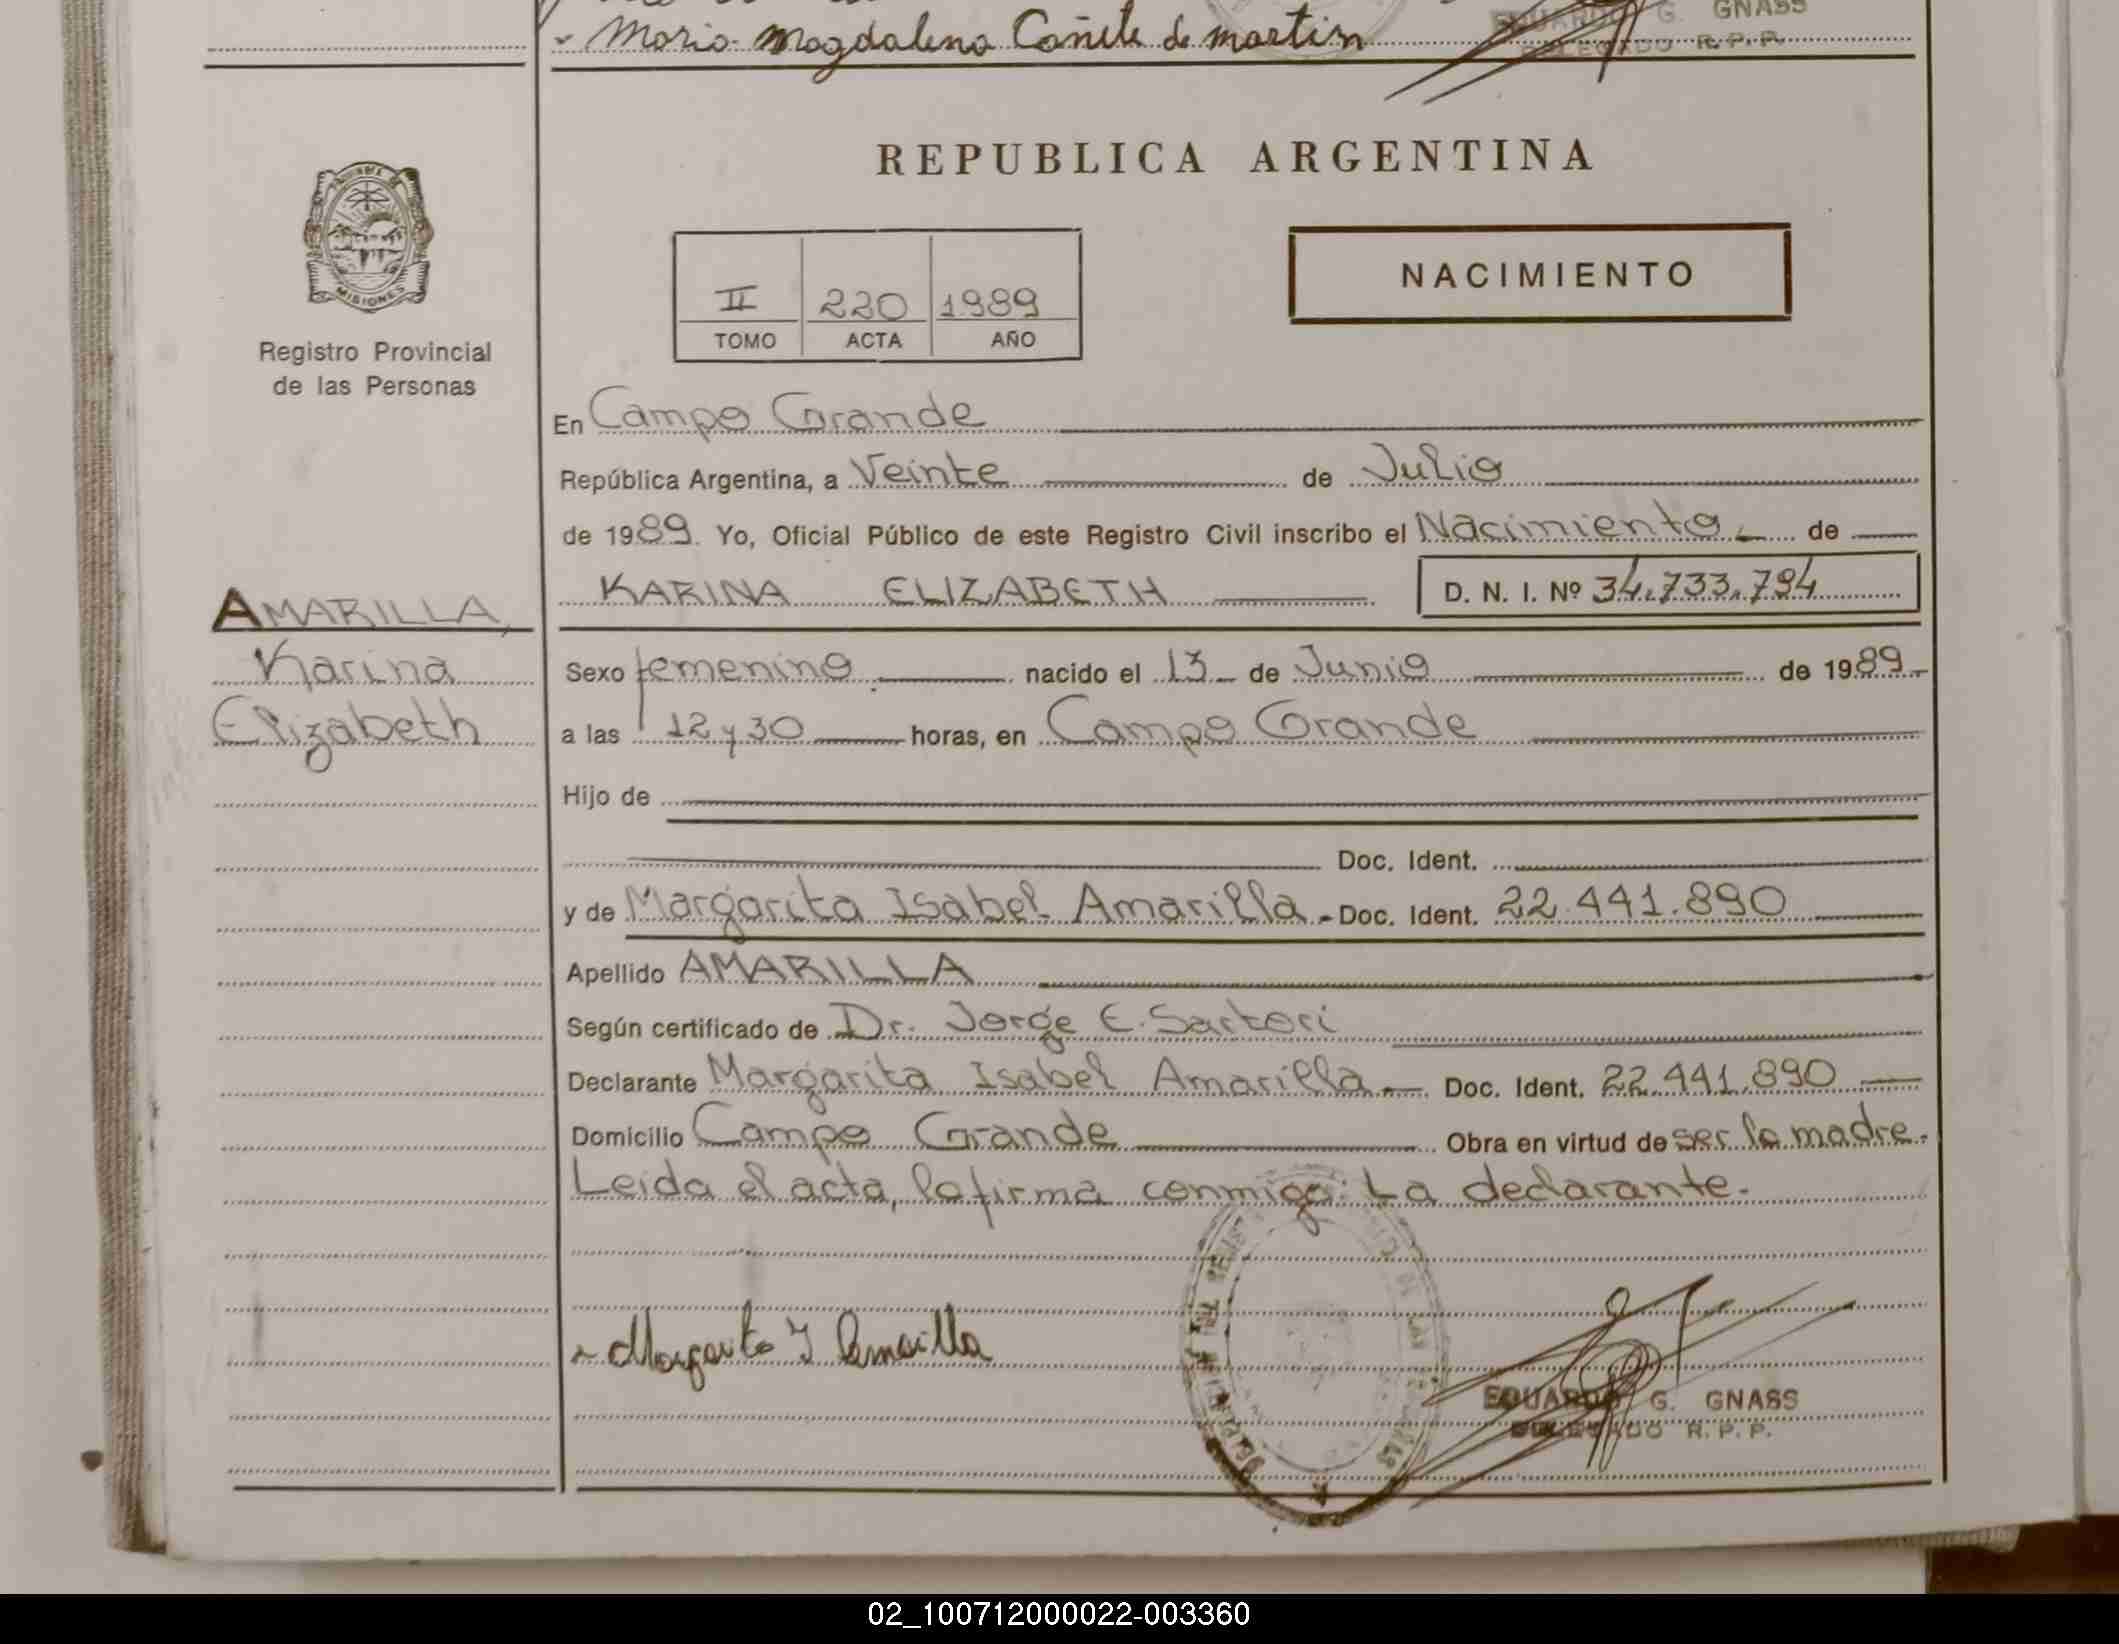 Maria Magdalena Cañete de martin
EDUARDO G. GNASS
DELEGADO R.P.P.
REPUBLICA ARGENTINA
MISIONES
Registro Provincial
de las Personas
NACIMIENTO
II 220 1989
TOMO ACTA AÑO
En Campo Grande
República Argentina, a Veinte de Julio
de 1989. Yo, Oficial Público de este Registro Civil inscribo el Nacimiento de
KARINA ELIZABETH D. N. I. Nº 34.733.794
AMARILLA,
Karina
Elizabeth
Sexo femenino nacido el 13 de Junio de 1989
a las 12 y 30 horas, en Campo Grande
Hijo de
Doc. Ident.
y de Margarita Isabel Amarilla Doc. Ident. 22.441.890
Apellido AMARILLA
Según certificado de Dr. Jorge E. Sartori
Declarante Margarita Isabel Amarilla Doc. Ident. 22.441.890
Domicilio Campo Grande Obra en virtud de ser la madre.
Leida el acta, la firma conmigo: La declarante.
Margarita I Amarilla
EDUARDO G. GNASS
DELEGADO R.P.P.
02_100712000022-003360